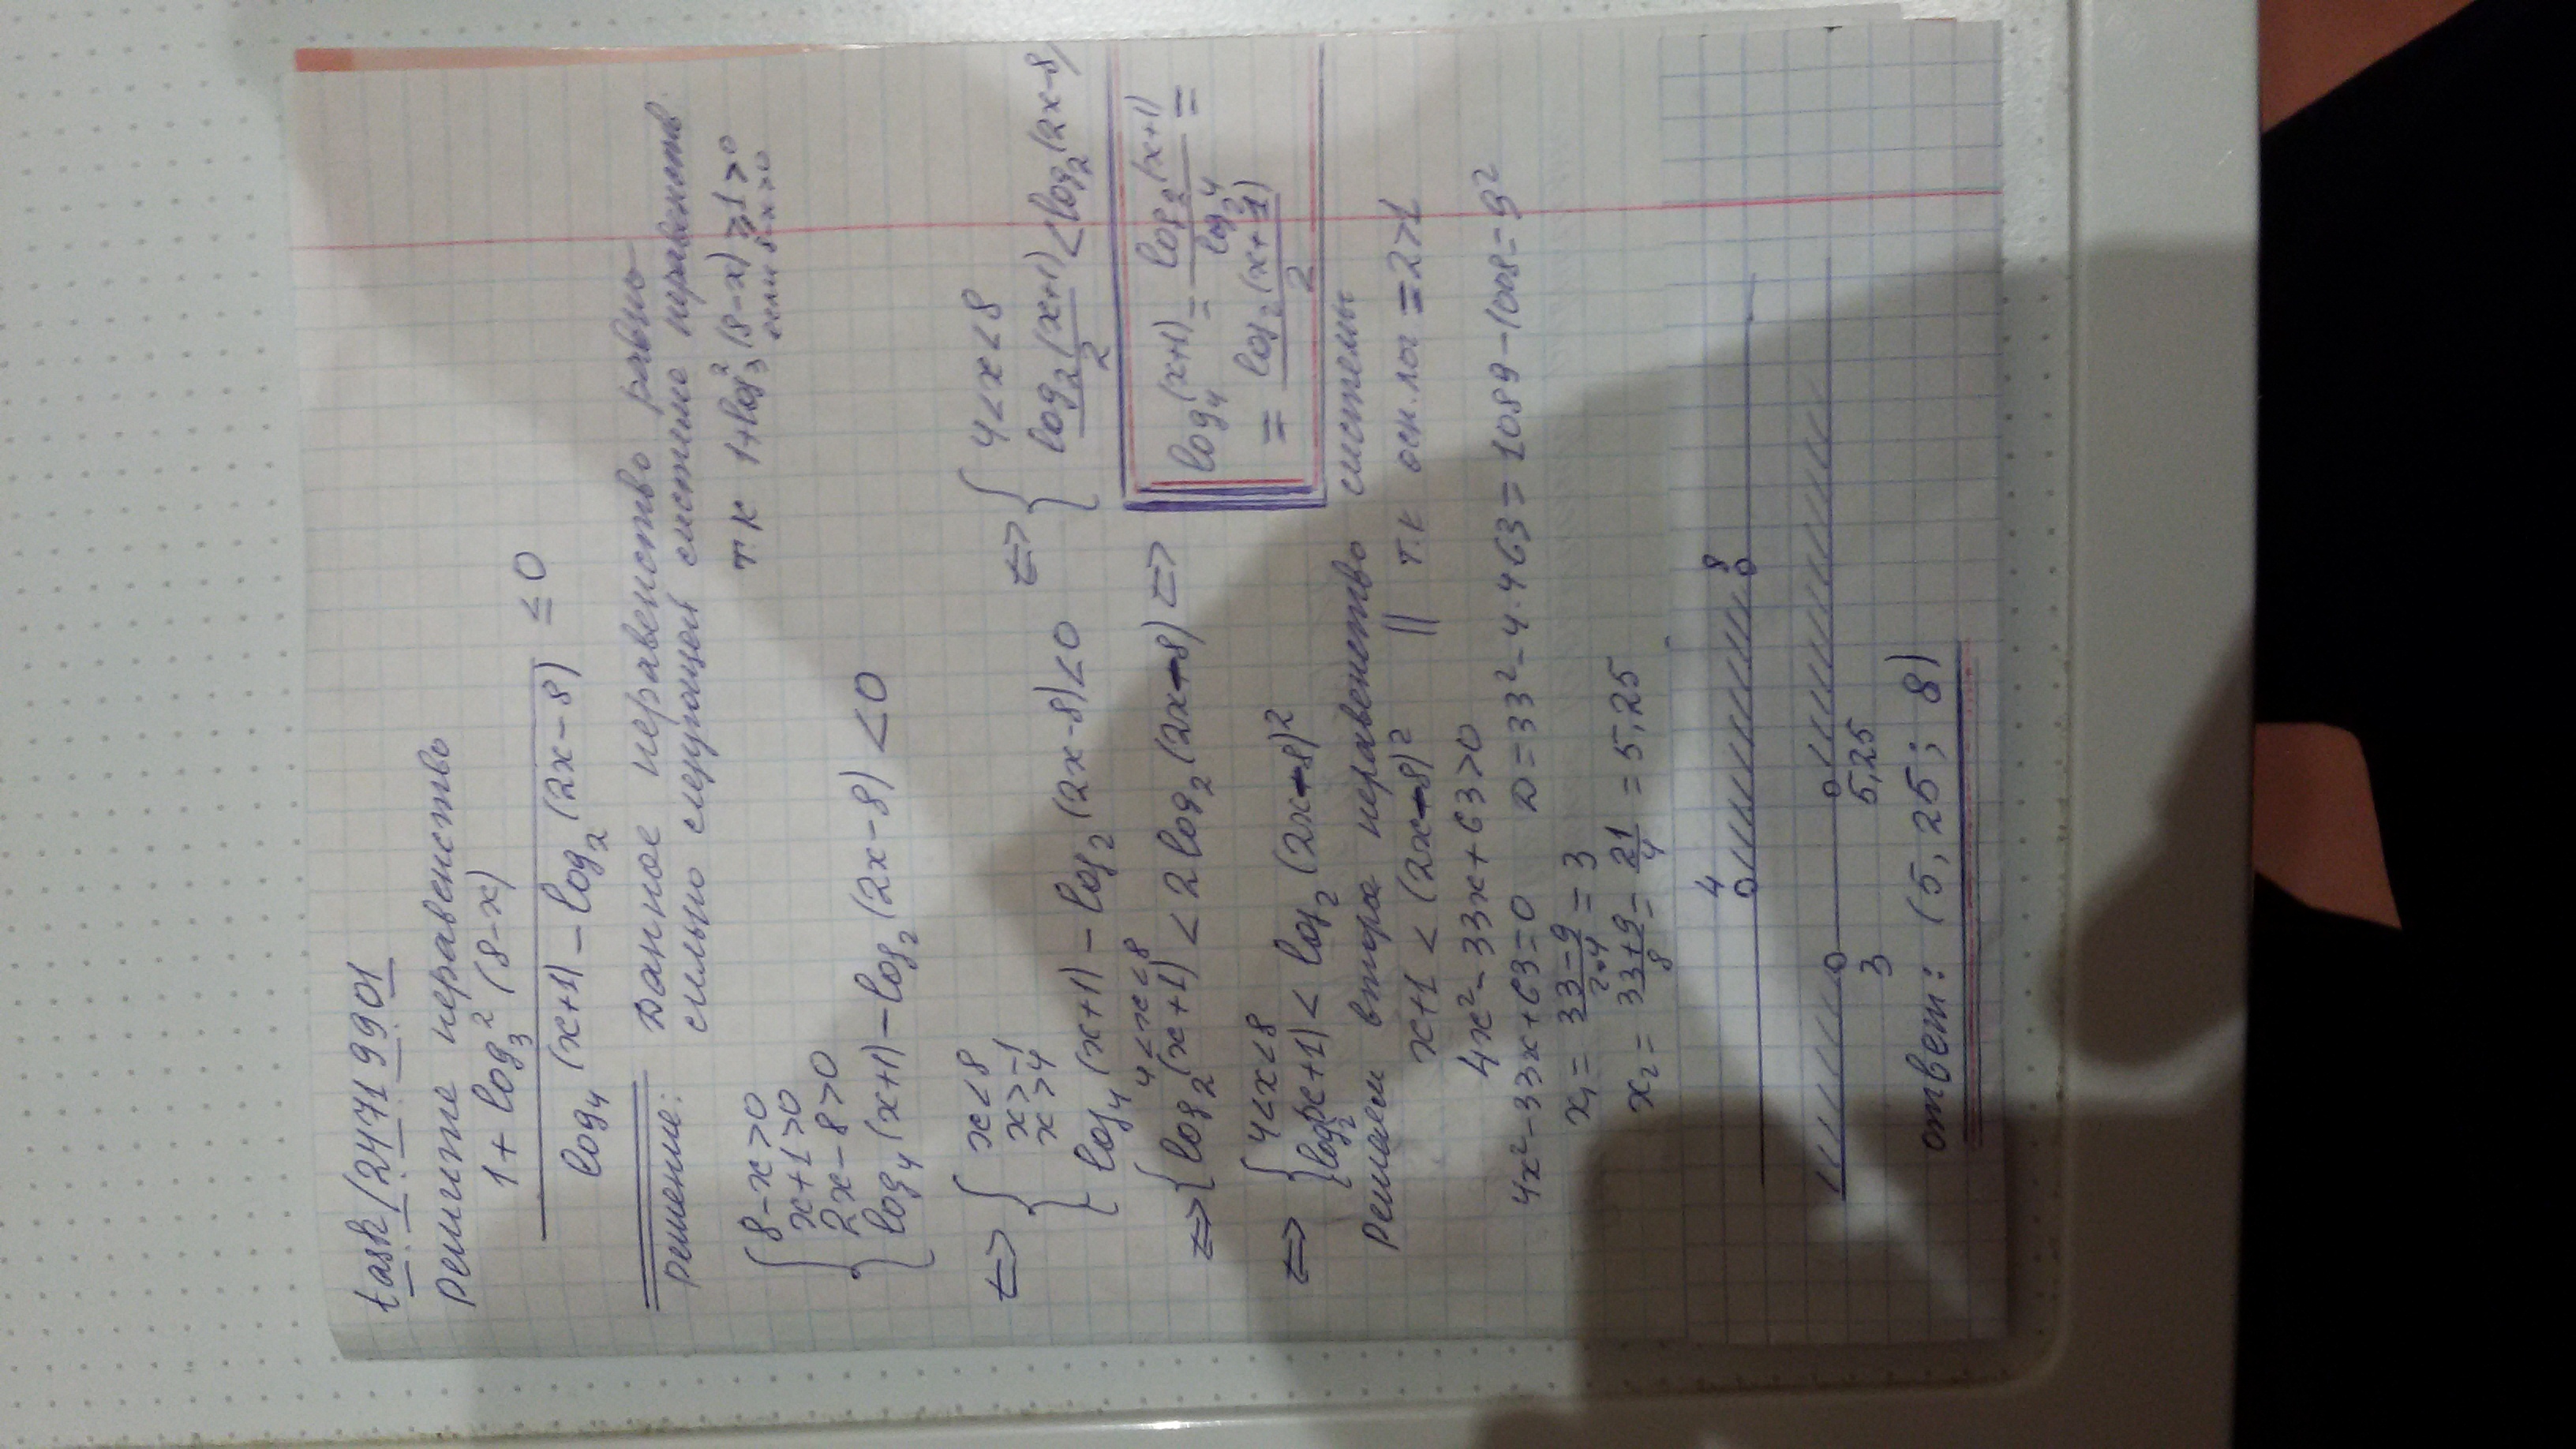 task/24719901
Решите неравенство
1 + log₃² (8-x)
log₄ (x+1) - log₂ (2x-8) ≤ 0
Решение: Данное неравенство равно-
сильно следующей системе неравенств
{ 8-x>0 т к 1+log₃² (8-x) ≥ 1 > 0
x+1>0 если 8-x>0
2x-8>0
log₄ (x+1) - log₂ (2x-8) < 0
⇔ { x<8
x>-1
x>4
log₄ (x+1) - log₂ (2x-8) < 0
⇔ { 4<x<8
log₂ (x+1) / 2 < log₂ (2x-8)
⇔ { 4<x<8
log₂ (x+1) < 2 log₂ (2x-8) ⇔
log₄ (x+1) = log₂ (x+1) / log₂ 4 =
= log₂ (x+1) / 2
⇔ { 4<x<8
log₂ (x+1) < log₂ (2x-8)²
Решаем втора неравенство системы
x+1 < (2x-8)² || т.к осн.лог = 2>1
4x² - 33x + 63 > 0
4x² - 33x + 63 = 0 D = 33² - 4·4 63 = 1089 - 1008 = 9²
x₁ = 33-9 / 2·4 = 3
x₂ = 33+9 / 8 = 21/4 = 5,25
4 8
3 5,25
ответ: (5,25; 8)